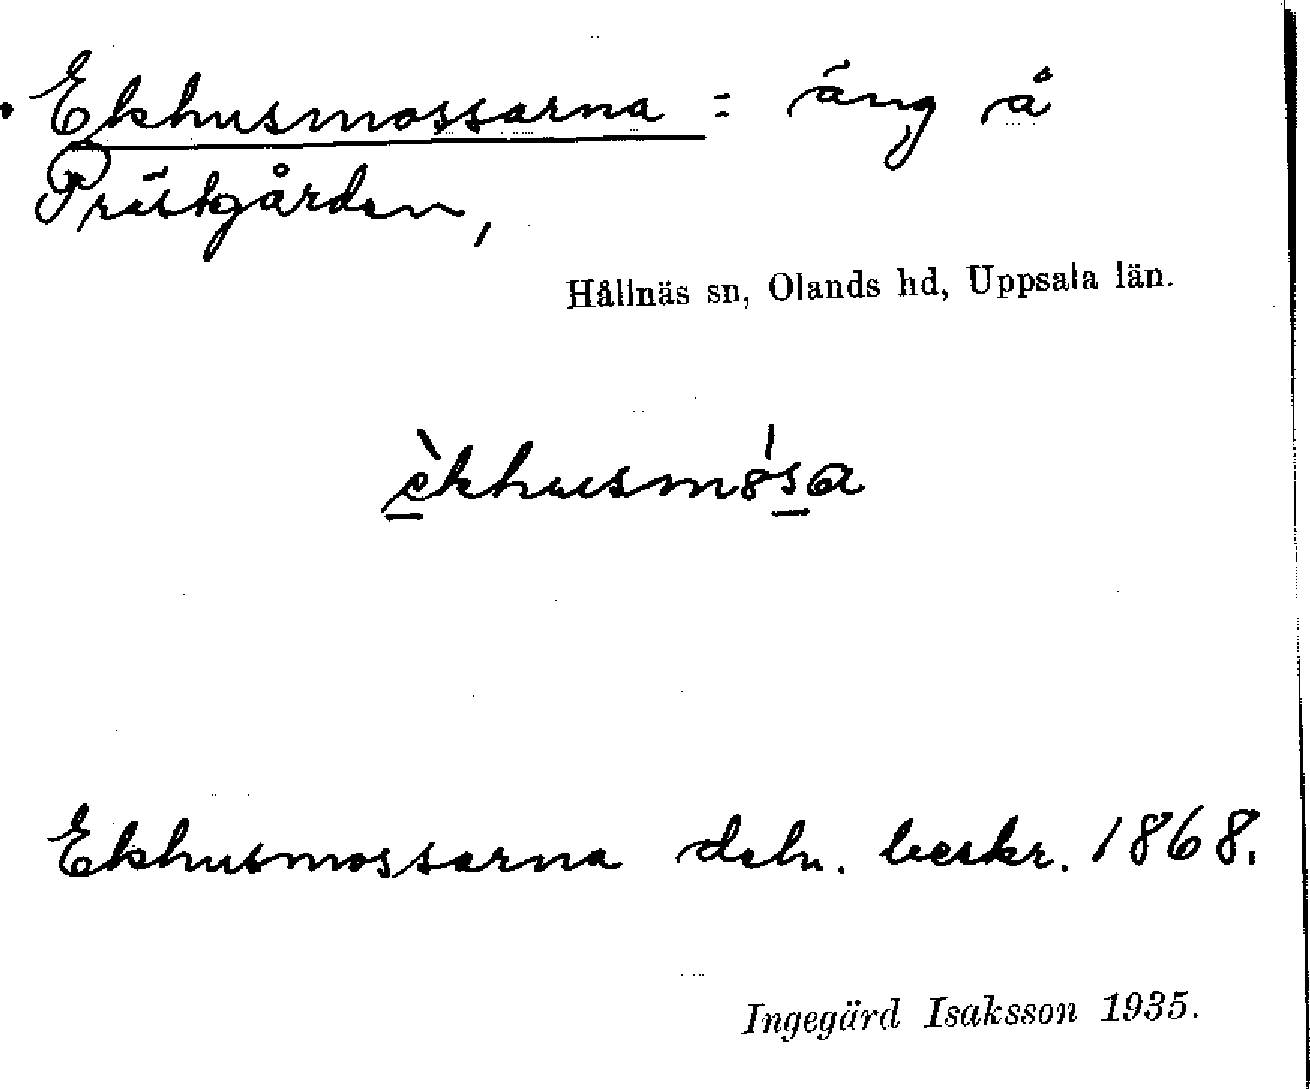 Ekhusmossarna : äng å
Prästgården,
Hållnäs sn, Olands hd, Uppsala län.
èkhusmø̍sa
Ekhusmossarna deln. beskr. 1868.
Ingegärd Isaksson 1935.